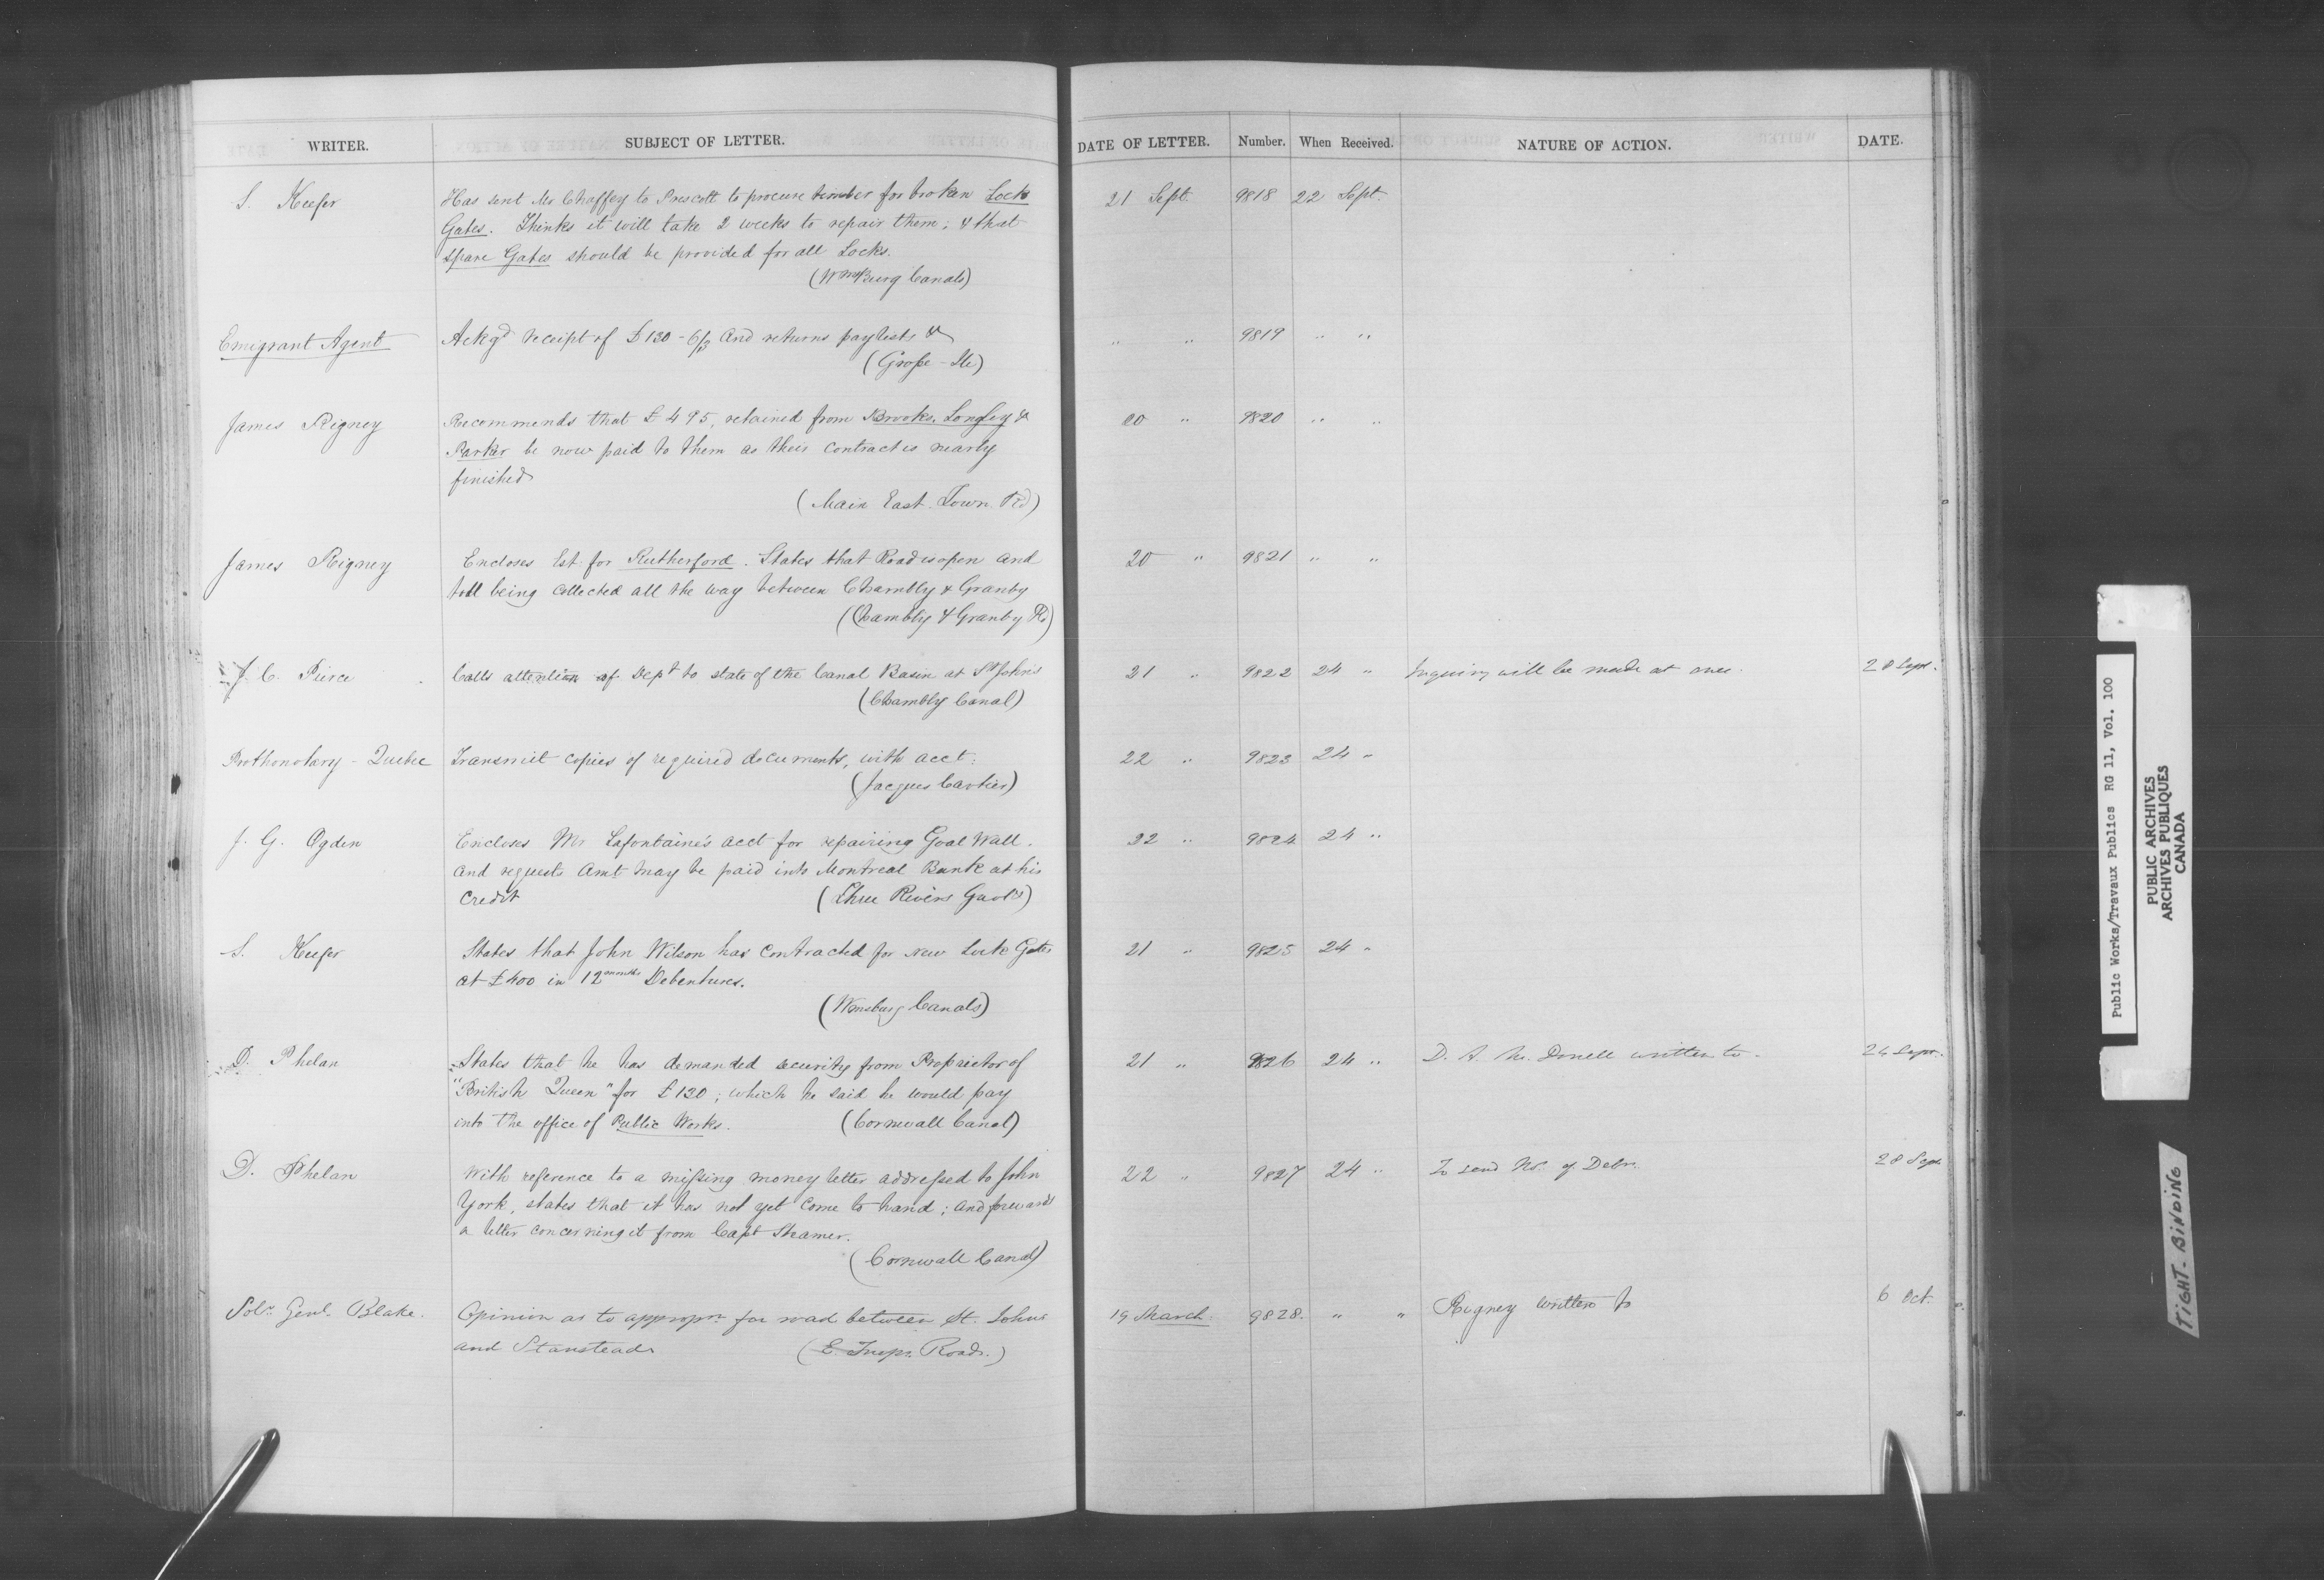 WRITER. SUBJECT OF LETTER. DATE OF LETTER. Number. When Received. NATURE OF ACTION. DATE.
S. Keefer Has sent Mr Chaffey to Prescott to procure timber for broken Lock 21 Sept. 9818 22 Sept.
Gates. Thinks it will take 2 weeks to repair them; & that
spare Gates should be provided for all Locks.
(WmsBurg Canals)
Emigrant Agent Ackgd receipt of £130-6/3 and returns paylists &c " " 9819 " "
(Grosse-Ile)
James Rigney Recommends that £495, retained from Brooks, Longley & 20 " 9820 " "
Parker be now paid to them as their contract is nearly
finished
(Main East. Town. Rd)
James Rigney Encloses Est. for Rutherford. States that Road is open and 20 " 9821 " "
toll being collected all the way between Chambly & Granby
(Chambly & Granby Rd)
J. C. Pierce Calls attention of Dept to state of the Canal Basin at St Johns 21 " 9822 24 " Inquiry will be made at once. 28 Sept.
(Chambly Canal)
Prothonotary - Quebec Transmit copies of required documents, with acct. 22 " 9823 24 "
(Jacques Cartier)
J. G. Ogden Encloses Mr Lafontaine's acct for repairing Goal Wall. 22 " 9824 24 "
and requests Amt may be paid into Montreal Bank at his
credit (Three Rivers Gaol)
S. Keefer States that John Wilson has contracted for new Lock Gates 21 " 9825 24 "
at £400 in 12 months Debentures.
(Wmsburg Canals)
D. Phelan States that he has demanded security from Proprietor of 21 " 9826 24 " D. A. McDonell written to. 24 Sept.
"British Queen" for £120; which he said he would pay
into the office of Public Works. (Cornwall Canal)
D. Phelan With reference to a missing money letter addressed to John 22 " 9827 24 " To send No. of Debr. 28 Sept.
York, states that it has not yet come to hand; and forwards
a letter concerning it from Capt Steamer.
(Cornwall Canal)
Solr. Genl. Blake. Opinion as to appropn. for road between St. Johns 19 March. 9828. " " Rigney written to 6 Oct.
and Stanstead (E. Twps. Roads.)
Public Works/Travaux Publics RG 11, Vol. 100
PUBLIC ARCHIVES
ARCHIVES PUBLIQUES
CANADA
TIGHT-BINDING